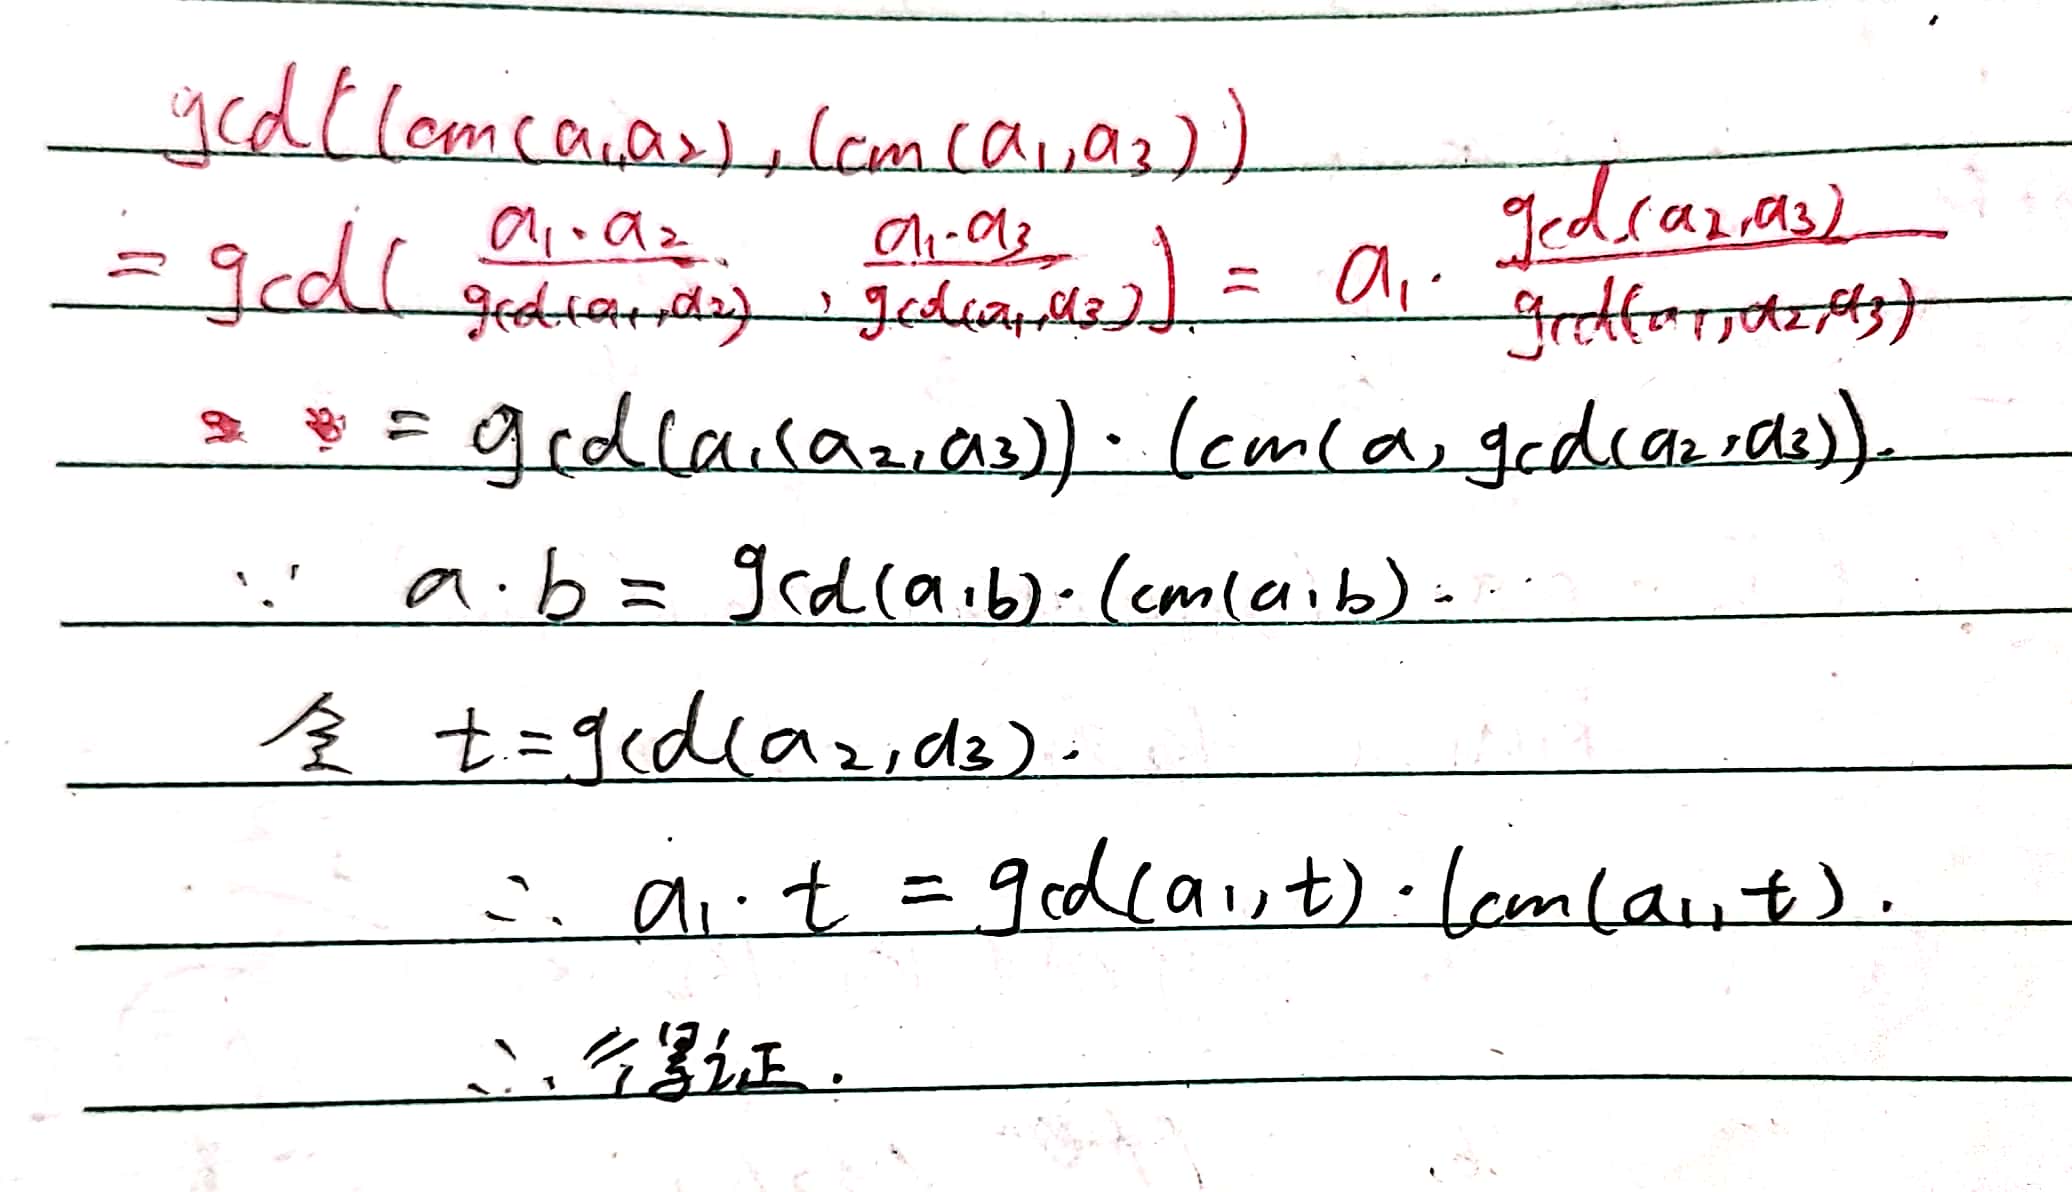 gcd(lcm(a₁,a₂), lcm(a₁,a₃))
= gcd( \frac{a₁·a₂}{gcd(a₁,a₂)} , \frac{a₁·a₃}{gcd(a₁,a₃)} ) = a₁· \frac{gcd(a₂,a₃)}{gcd(a₁,a₂,a₃)}
= gcd(a₁(a₂,a₃))·lcm(a, gcd(a₂,a₃)).
∵ a·b = gcd(a,b)·lcm(a,b).
令 t=gcd(a₂,a₃).
∴ a₁·t = gcd(a₁,t)·lcm(a₁,t).
∴ 得证.